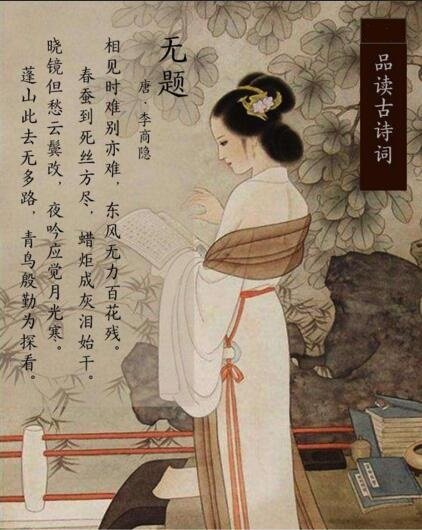 品读古诗词
无题
唐·李商隐
相见时难别亦难，东风无力百花残。
春蚕到死丝方尽，蜡炬成灰泪始干。
晓镜但愁云鬓改，夜吟应觉月光寒。
蓬山此去无多路，青鸟殷勤为探看。